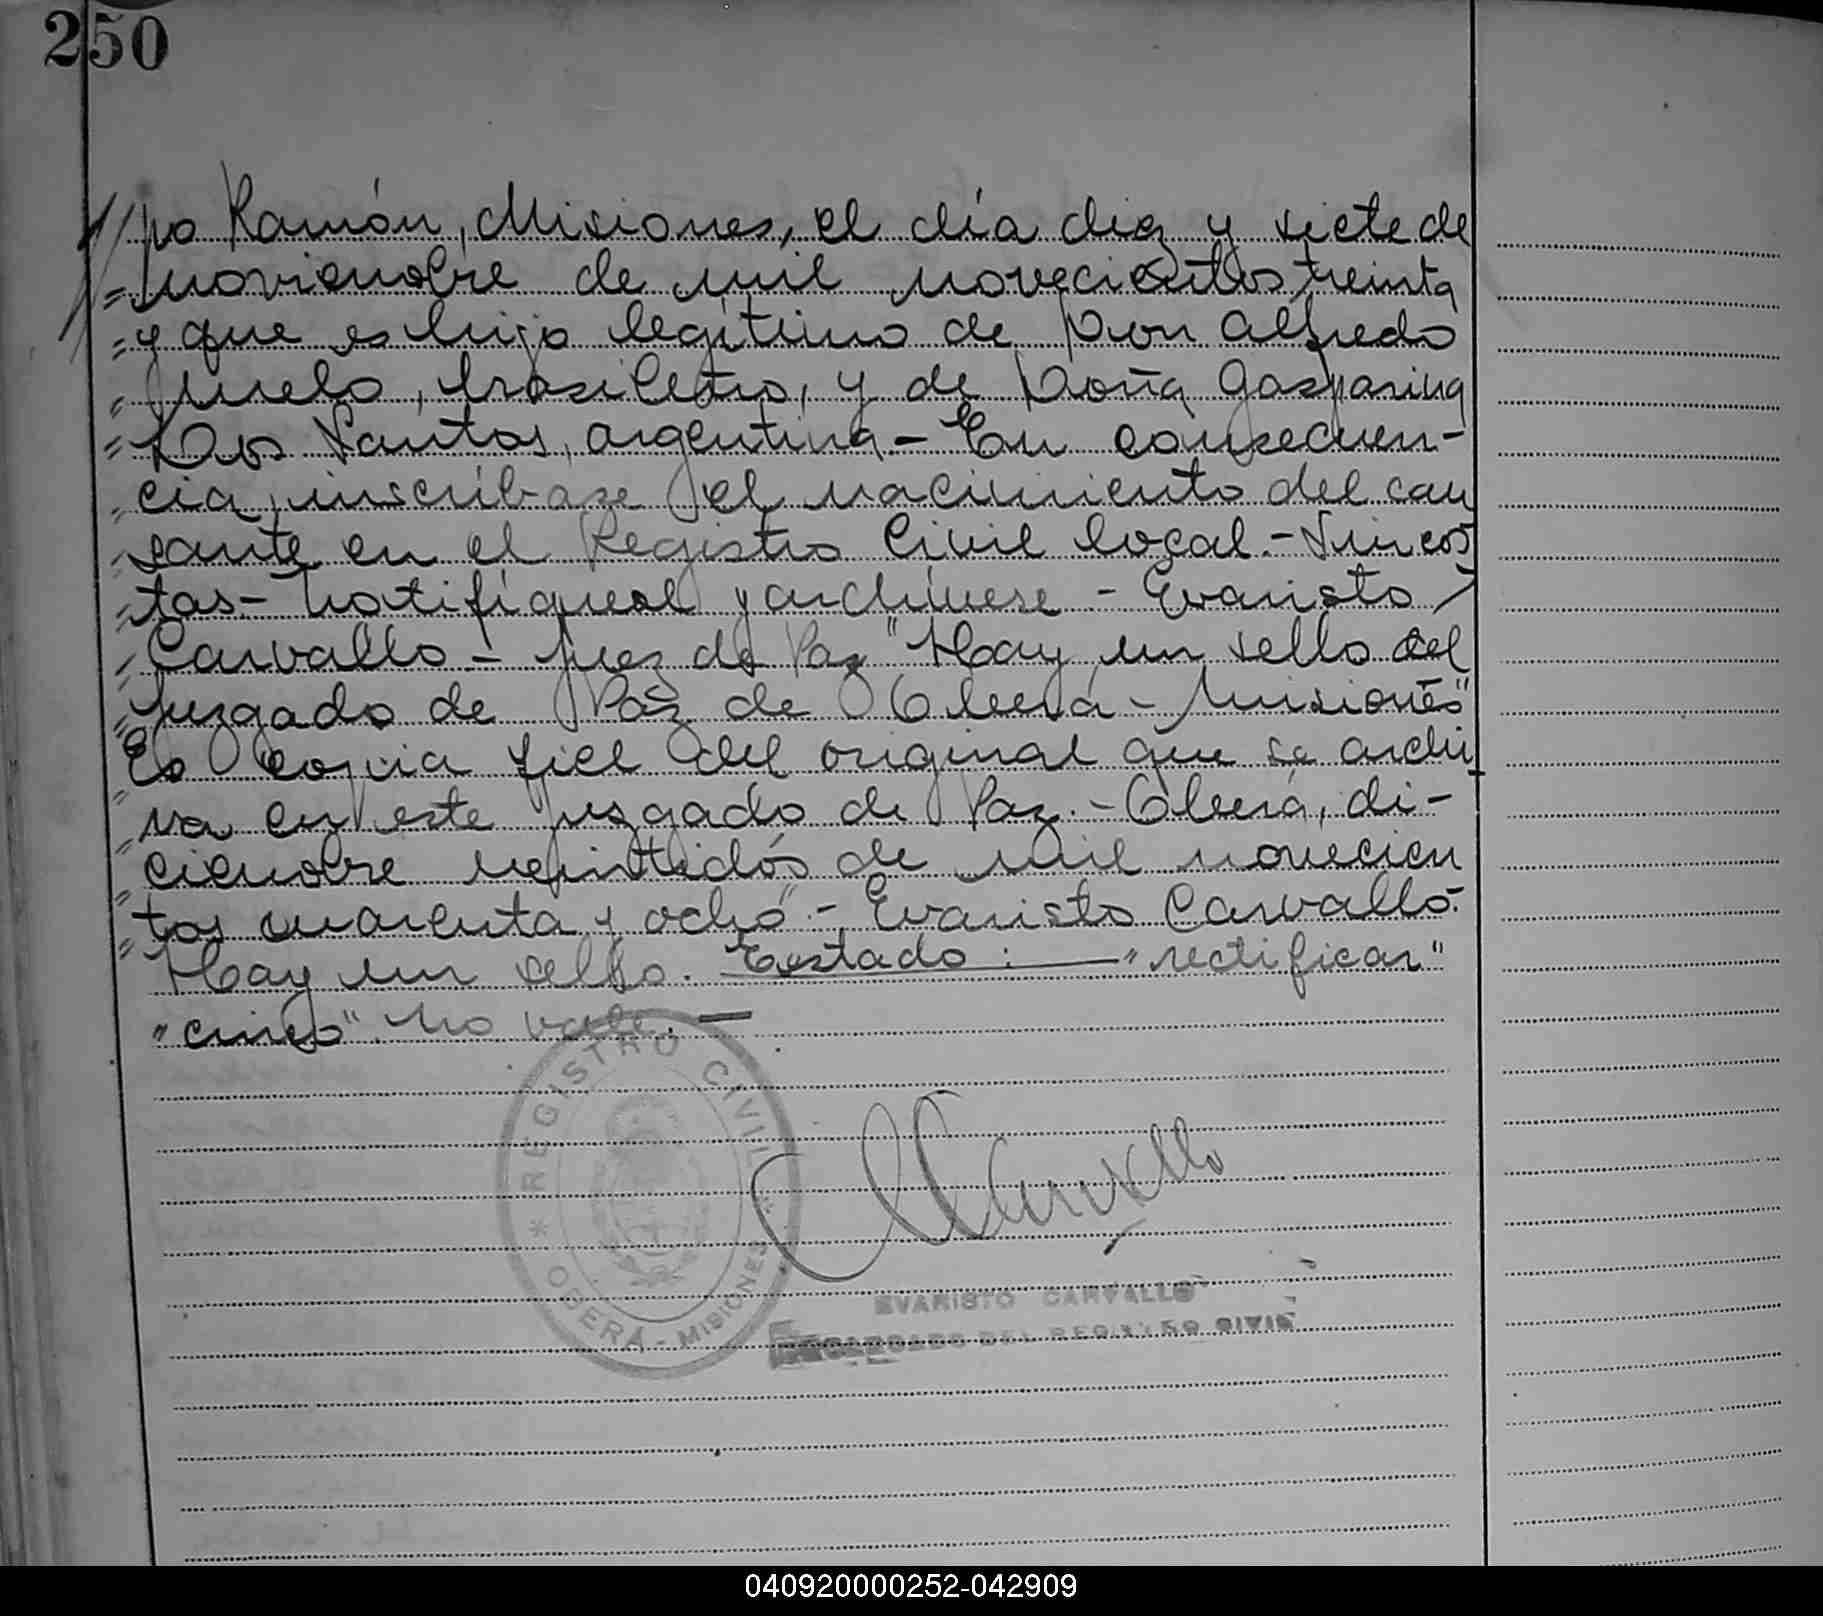 250
po Ramón, Misiones, el día diez y siete de
noviembre de mil novecientos treinta
y que es hijo legítimo de Don Alfredo
Melo, brasileño, y de Doña Gasparina
Dos Santos, argentina - En consecuen-
cia, inscríbase el nacimiento del cau
sante en el Registro Civil local. - Sin cos
tas - Notifíquese y archívese - Evaristo
Carvallo - Juez de Paz "Hay un sello del
Juzgado de Paz de Oberá - Misiones"
Es copia fiel del original que se archi
va en este Juzgado de Paz. - Oberá, di-
ciembre veintidós de mil novecien
tos cuarenta y ocho". - Evaristo Carvallo. -
Hay un sello. Testado: — "rectificar"
"cinco". No vale. —
REGISTRO CIVIL
OBERÁ - MISIONES
Carvallo
EVARISTO CARVALLO
ENCARGADO DEL REGISTRO CIVIL
040920000252-042909